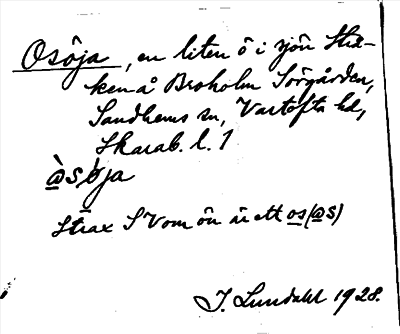 Osöja, en liten ö i sjön Stra-
ken å Broholm Sörgården,
Sandhems sn, Vartofta hd,
Skarab. l. 1
Strax SV om ön är ett os (@s)
J. Lundahl 1928.